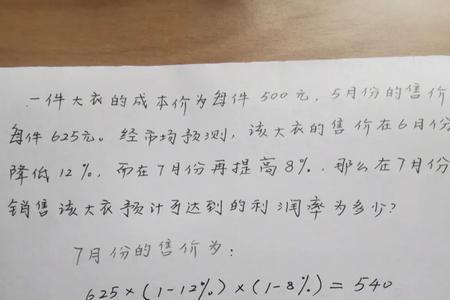 一件大衣的成本价为每件500元，5月份的售价
每件625元。经市场预测，该大衣的售价在6月份
降低12%，而在7月份再提高8%，那么在7月份
销售该大衣预计可达到的利润率为多少？
7月份的售价为：
625×(1-12%)×(1-8%)=540